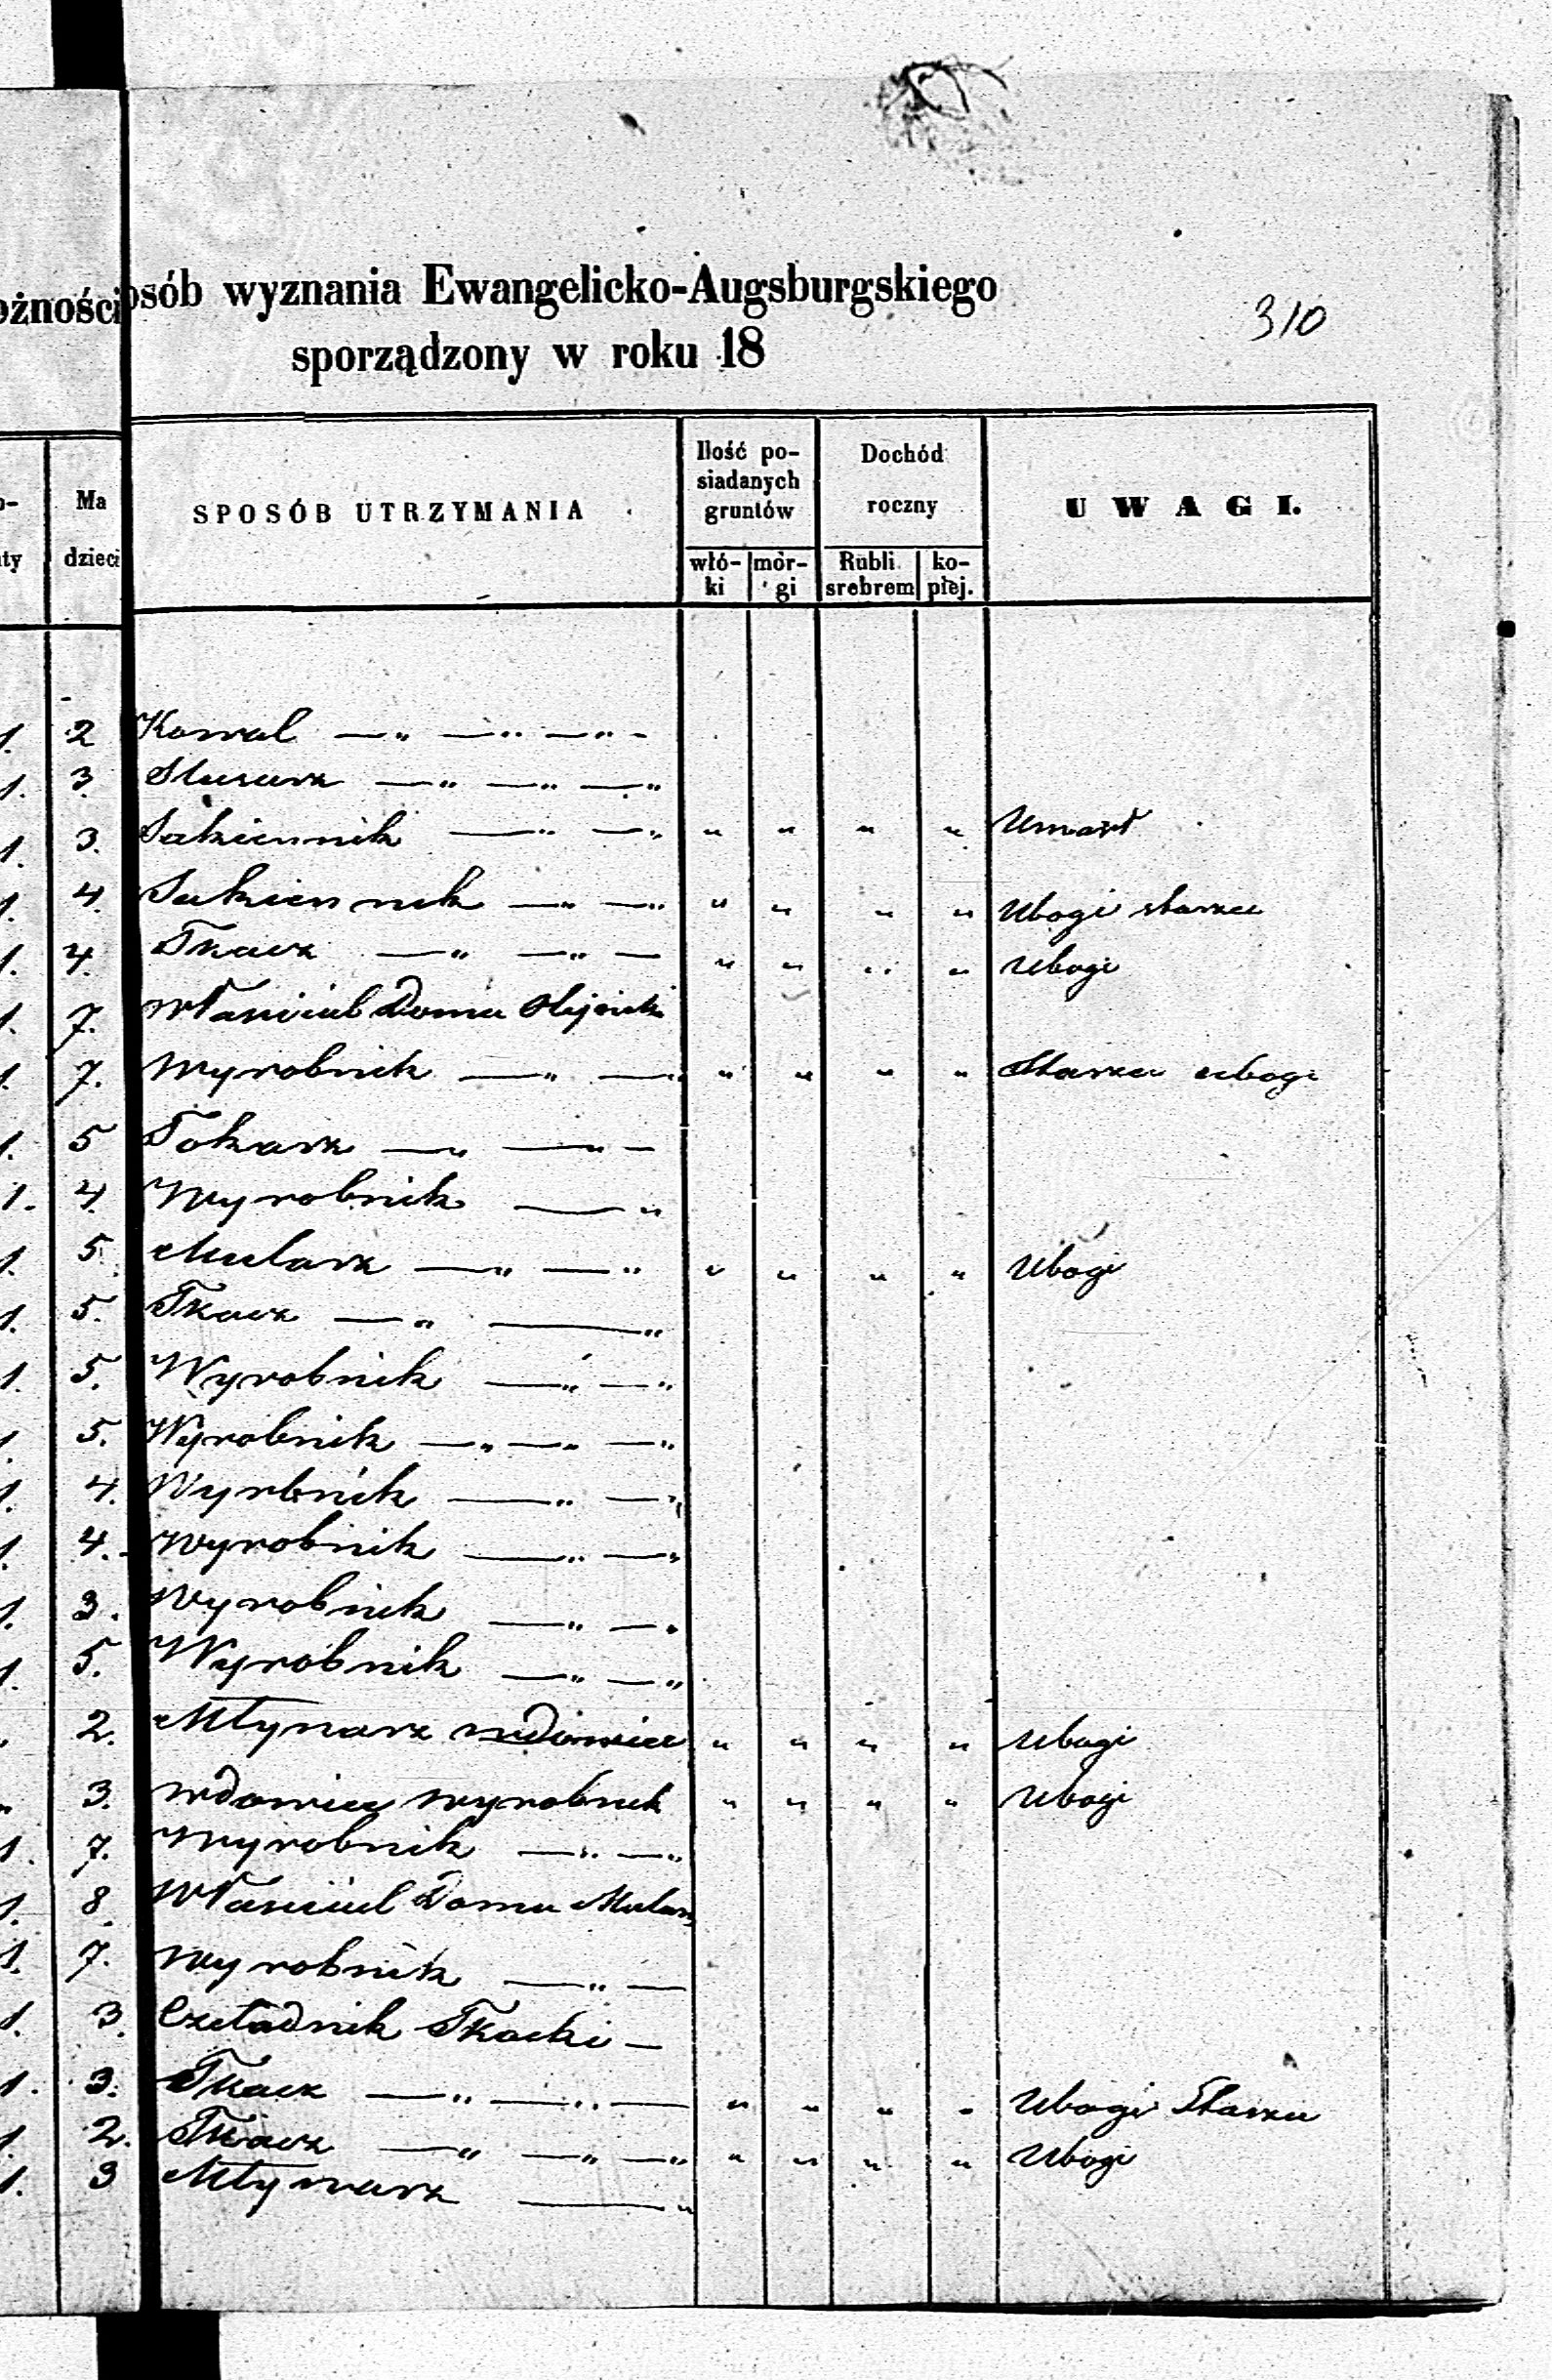 ożności osób wyznania Ewangelicko-Augsburgskiego
310
sporządzony w roku 18
o- ty Ma dzieci SPOSÓB UTRZYMANIA Ilość posiadanych gruntów włóki morgi Dochód roczny Rubli srebrem kopiej. UWAGI.
1. 2 Kowal —„ —„ —„ -
1. 3. Slusarz —„ —„ —„
1. 3. Sukiennik —„ —„ „ „ „ „ Umarł
1. 4. Sukiennik —„ —„ „ „ „ „ Ubogi starzec
1. 4. Tkacz —„ —„ — „ „ „ „ Ubogi
1. 7. Własciciel Domu Olejnik
1. 7. Wyrobnik —„ — „ „ „ „ Starzec ubogi
1. 5 Tokarz —„ —„ —
1. 4. Wyrobnik —„
1. 5. Mularz —„ —„ „ „ „ „ Ubogi
1. 5. Tkacz —„ —„
1. 5. Wyrobnik —„ —„
1. 5. Wyrobnik —„ —„ —„
1. 4. Wyrbnik —„ —„
1. 4. Wyrobnik —„ —„
1. 3. Wyrobnik —„ —„
1. 5. Wyrobnik —„ —„
2. Młynarz wdowiec „ „ „ „ Ubogi
„ 3. wdowiec wyrobnik „ „ „ „ Ubogi
1. 7. Wyrobnik —„ —„
1. 8. Własciciel Domu Mularz
1. 7. Wyrobnik —„ —
1. 3. Czeladnik Tkacki —
1. 3. Tkacz —„ —„ — „ „ „ „ Ubogi Starzec
1. 2. Tkacz —„ —„ —„ „ „ „ „ Ubogi
1. 3 Młynarz —„